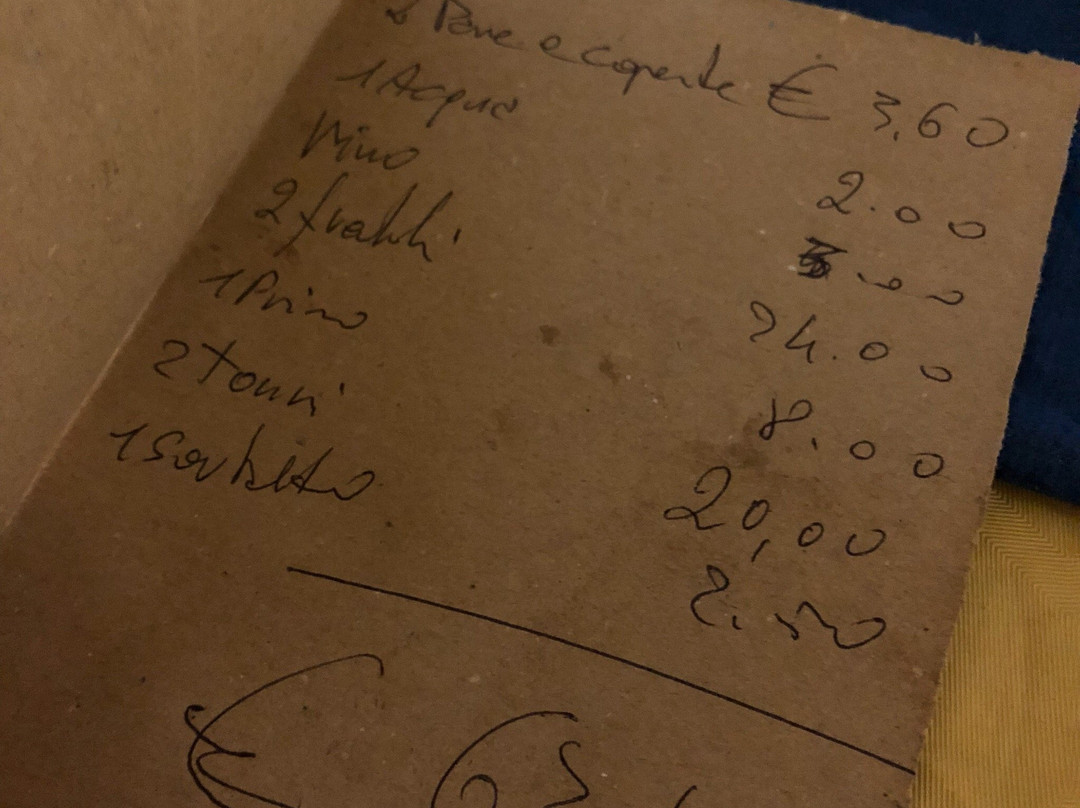 2 Pane e coperte € 3,60
1 Acqua 2.00
Vino 5.00
2 fratti 24.00
1 Primo 8.00
2 Tonni 20,00
1 Sorbetto 2.50
€ 65